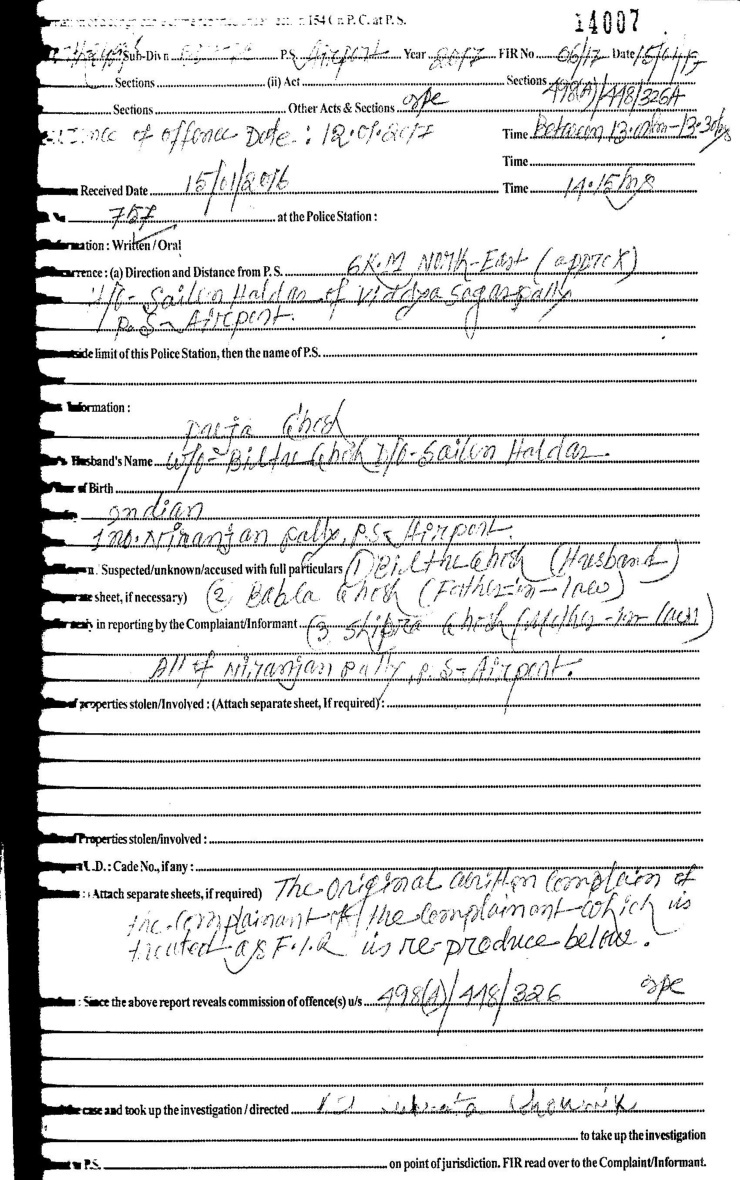 154 Cr. P.C. at P.S.
14007
Sub-Divn P.S. Airport Year 2017 FIR No 06/17 Date 15/01/17
Sections (ii) Act Sections 498(A)/448/326A
Sections Other Acts & Sections IPC
of offence Date : 12.01.2017 Time Between 13.00hrs-13.30hrs
Time
Received Date 15/01/2016 Time 14.15 hrs
757 at the Police Station :
: Written / Oral
: (a) Direction and Distance from P. S. 6 K.M North-East (approx)
H/O- Sailen Haldar of Viddya Sagar pally
P.S- Airport.
limit of this Police Station, then the name of P.S.
Information :
Ghosh
Husband's Name W/O- Biltu Ghosh D/O- Sailen Haldar.
of Birth
Indian
1 no. Niranjan pally, P.S- Airport.
Suspected/unknown/accused with full particulars (1) Biltu Ghosh (Husband)
sheet, if necessary) (2) Babla Ghosh (Father-in-law)
in reporting by the Complaint/Informant (3) Shipra Ghosh (Mother-in-law)
All of Niranjan pally, P.S- Airport.
properties stolen/Involved : (Attach separate sheet, If required) :
Properties stolen/involved :
U.D. : Cade No., if any :
: (Attach separate sheets, if required) The Original written Complain of
the Complainant of the Complainant which is
treated as F.I.R is re-produce below.
: Since the above report reveals commission of offence(s) u/s 498(A)/448/326 IPC
the case and took up the investigation / directed
to take up the investigation
P.S. on point of jurisdiction. FIR read over to the Complaint/Informant.